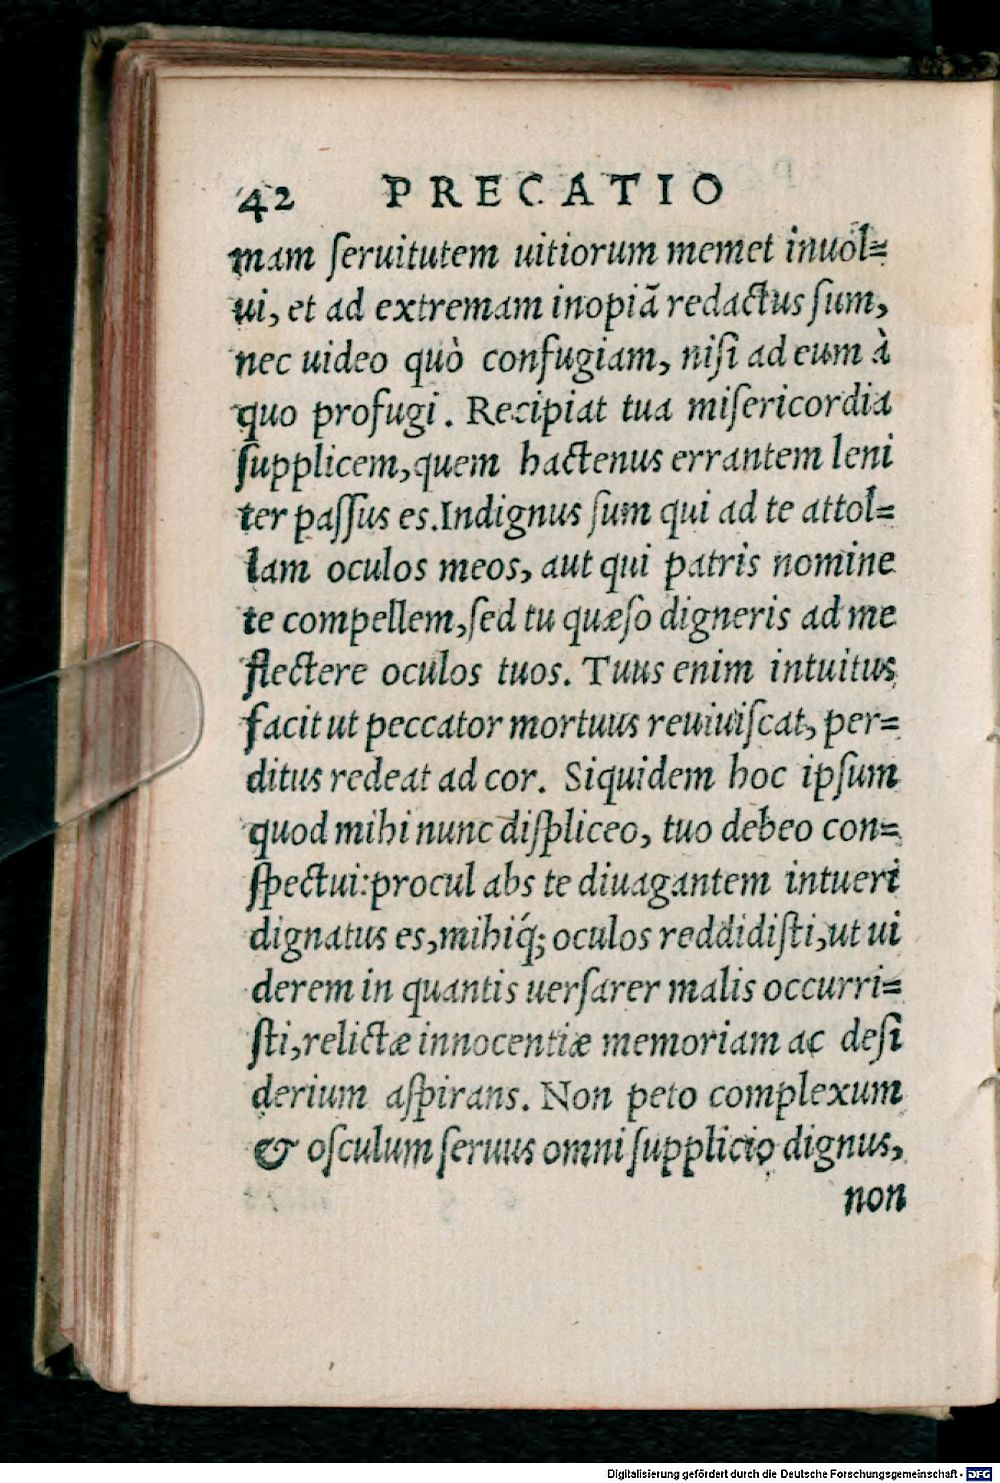 42 PRECATIO
mam ſeruitutem uitiorum memet inuol=
ui, et ad extremam inopiã redactus ſum,
nec uideo quò confugiam, niſi ad eum à
quo profugi. Recipiat tua miſericordia
ſupplicem, quem hactenus errantem leni
ter paſſus es. Indignus ſum qui ad te attol=
lam oculos meos, aut qui patris nomine
te compellem, ſed tu quæſo digneris ad me
flectere oculos tuos. Tuus enim intuitus
facit ut peccator mortuus reuiuiſcat, per=
ditus redeat ad cor. Siquidem hoc ipſum
quod mihi nunc diſpliceo, tuo debeo con=
ſpectui: procul abs te diuagantem intueri
dignatus es, mihiq́; oculos reddidiſti, ut ui
derem in quantis uerſarer malis occurri=
ſti, relictæ innocentiæ memoriam ac deſi
derium aſpirans. Non peto complexum
& oſculum ſeruus omni ſupplicio dignus,
non
Digitalisierung gefördert durch die Deutsche Forschungsgemeinschaft - DFG